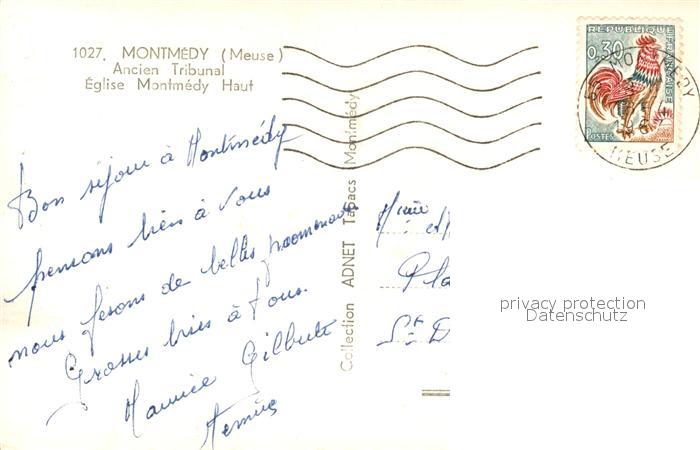 1027. MONTMÉDY (Meuse)
Ancien Tribunal
Église Montmédy Haut
RÉPUBLIQUE FRANÇAISE
0,30
POSTES
MEUSE
Bon séjour à Montmédy
pensons bien à vous
nous fesons de belles promenades
Grosses bises à tous.
Maurice Gilberte
Collection ADNET Tabacs Montmédy
Pla
St D
privacy protection
Datenschutz